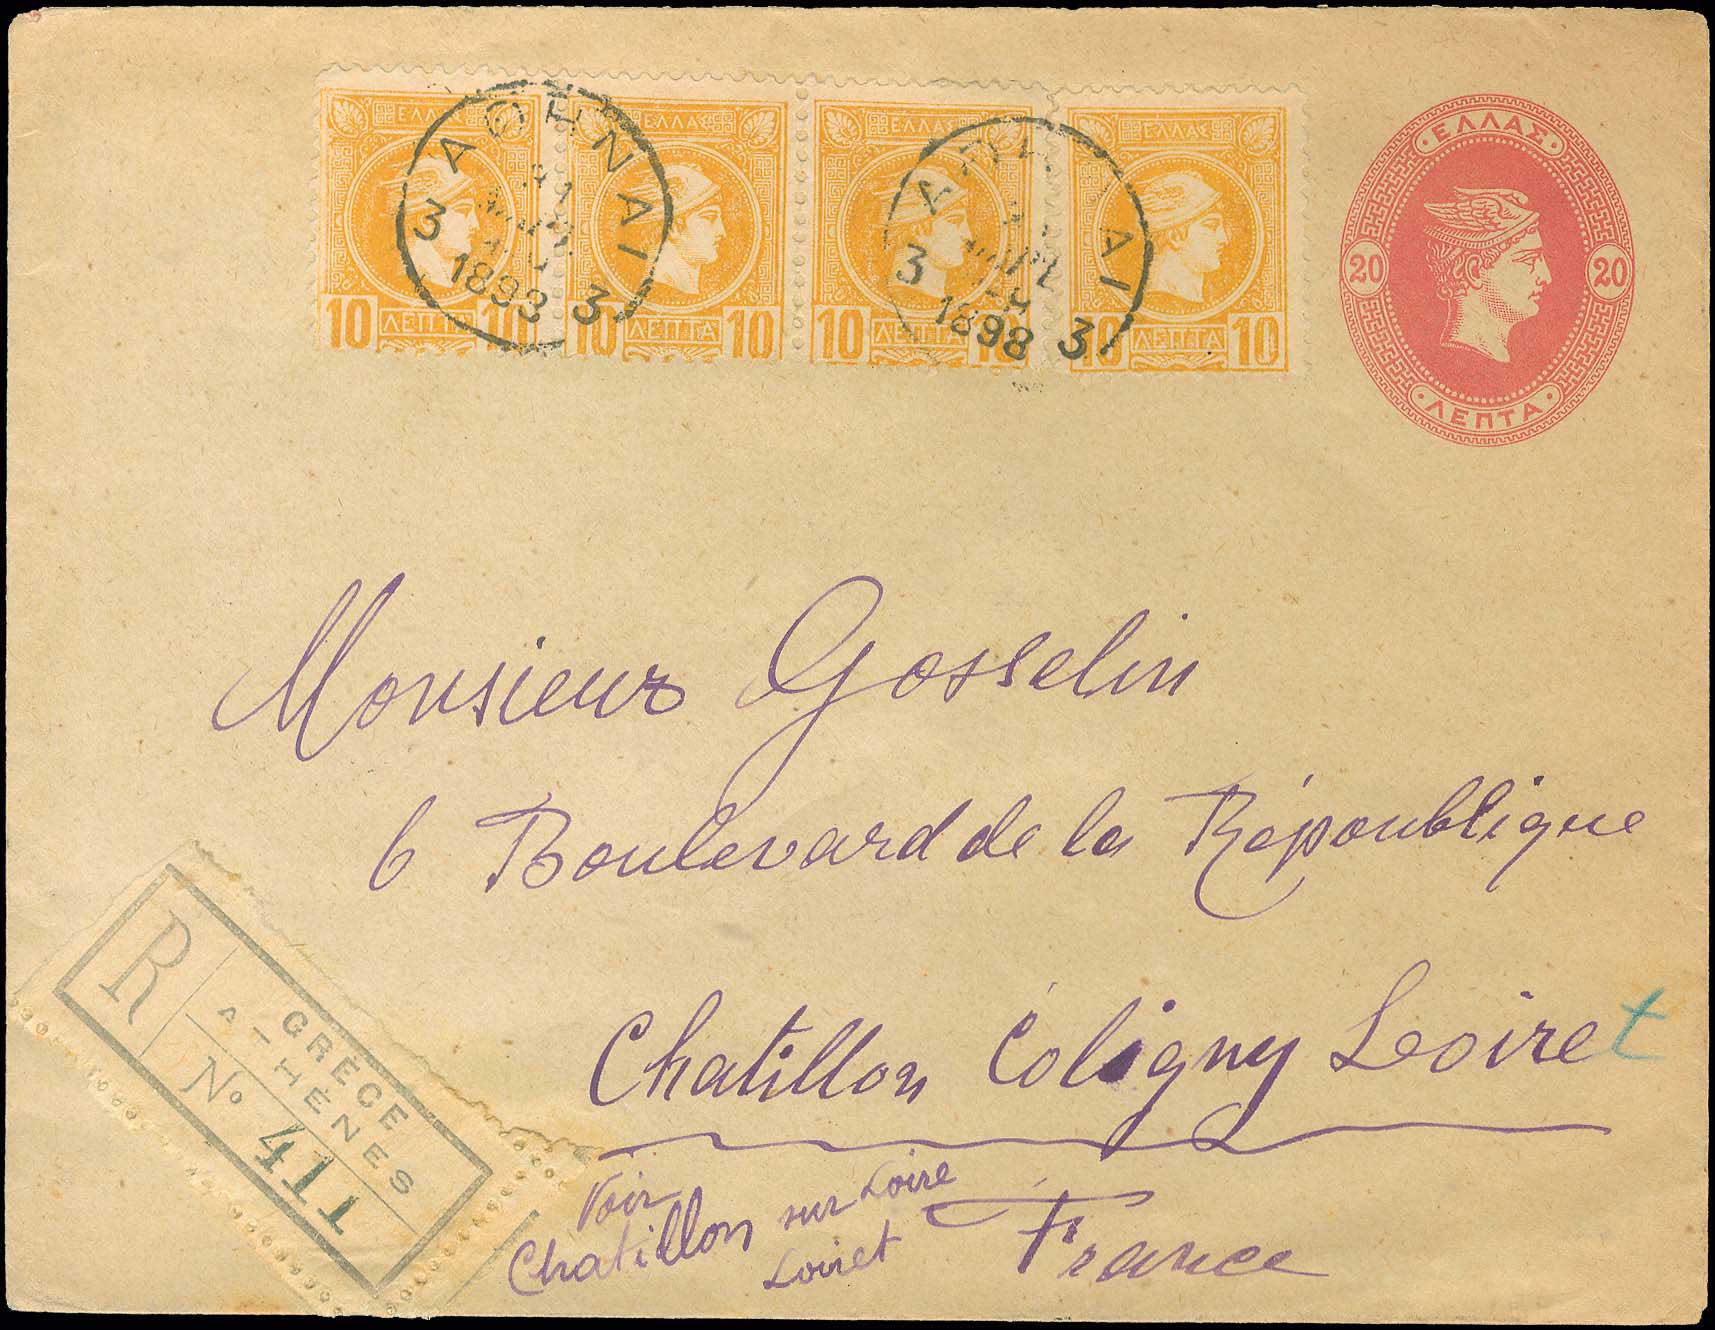 ΕΛΛΑΣ ΕΛΛΑΣ ΕΛΛΑΣ ΕΛΛΑΣ
10 ΛΕΠΤΑ 10
10 ΛΕΠΤΑ 10
10 ΛΕΠΤΑ 10
10 ΛΕΠΤΑ 10
ΑΘΗΝΑΙ
3 3
1898
ΑΘΗΝΑΙ
3 3
1898
·ΕΛΛΑΣ·
20 20
·ΛΕΠΤΑ·
Monsieur Gosselin
6 Boulevard de la Répoublique
Chatillon Coligny Loiret
Voir
Chatillon sur Loire
Loiret
France
R
GRÈCE
A-HÈNES
No 411